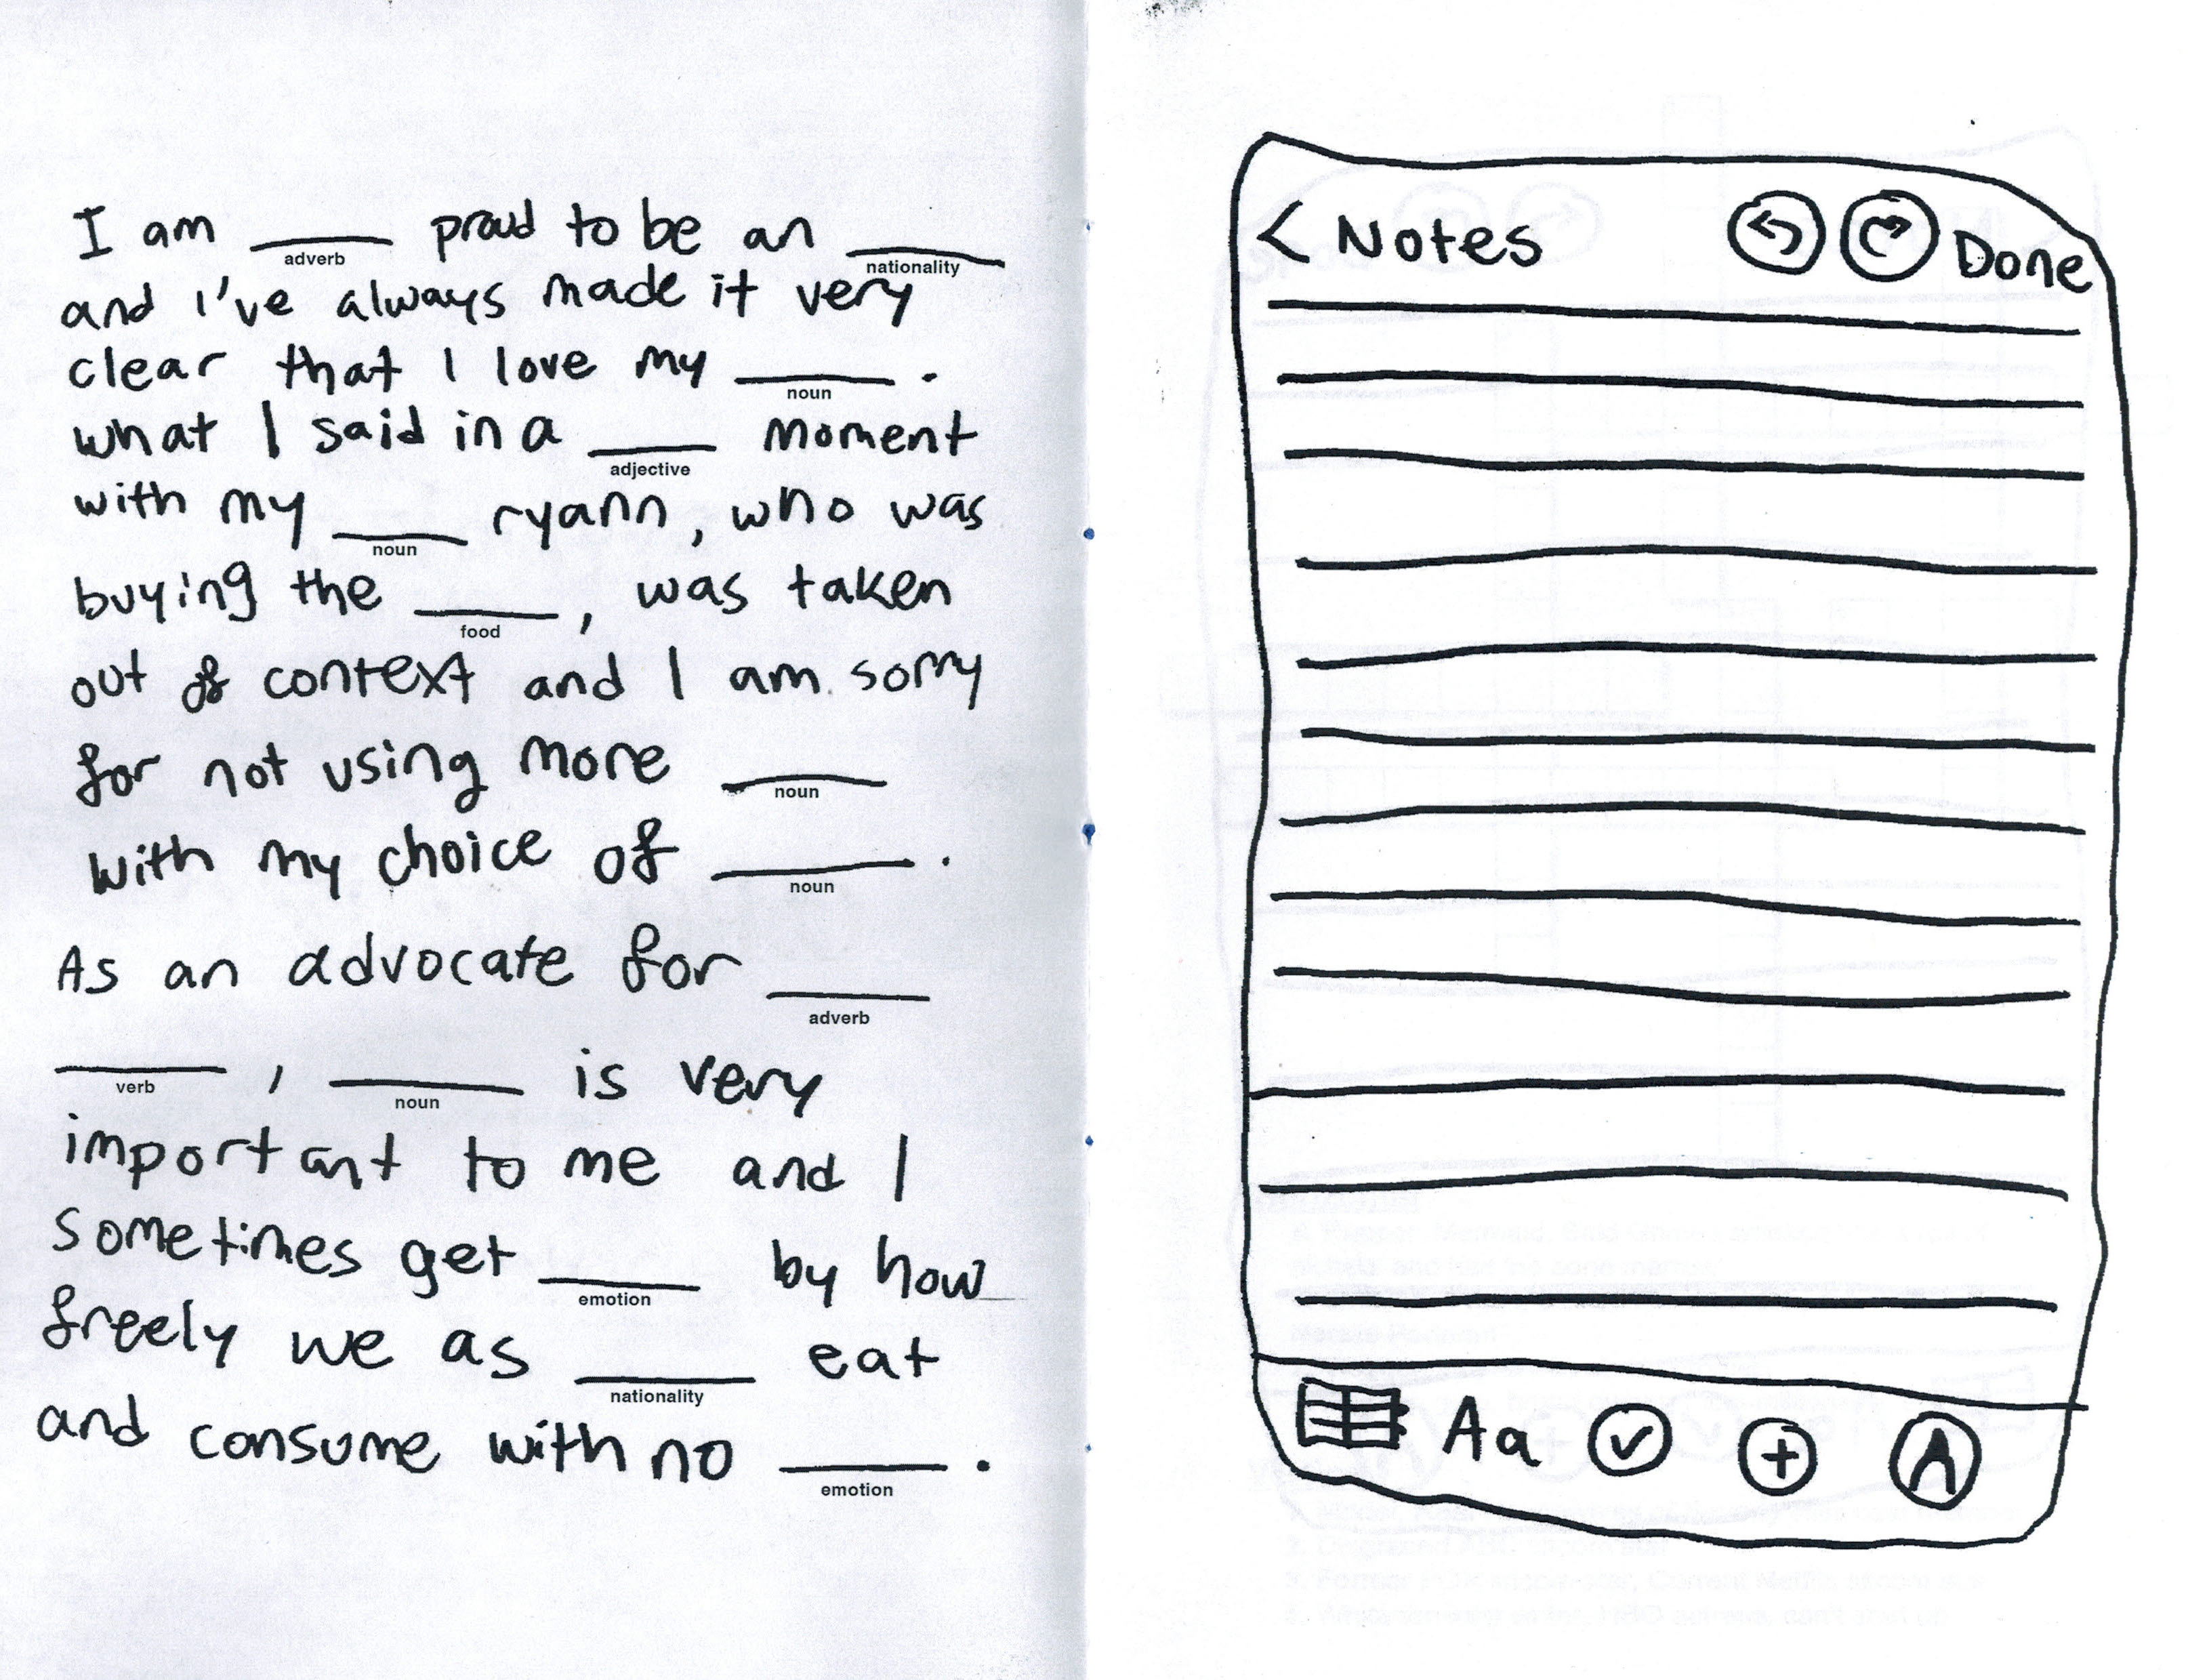 I am ______ proud to be an ______
adverb
nationality
and I've always made it very
clear that I love my ______ .
noun
what I said in a ______ moment
adjective
with my ______ ryann, who was
noun
buying the ______ , was taken
food
out of context and I am sorry
for not using more ______
noun
with my choice of ______ .
noun
As an advocate for ______
adverb
______ , ______ is very
verb
noun
important to me and I
sometimes get ______ by how
emotion
freely we as ______ eat
nationality
and consume with no ______ .
emotion
< Notes
Done
Aa
A